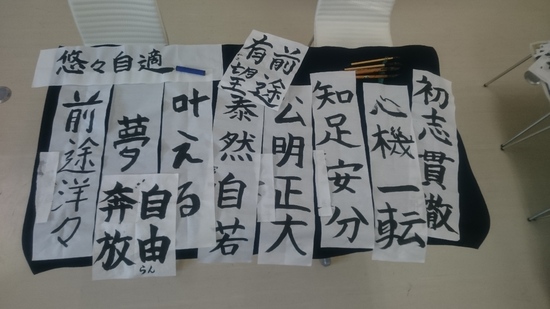 悠々自適
前途
有望
初志貫散
心機一転
知足安分
公明正大
泰然自若
叶える
夢
前途洋々
自由
奔放
らん